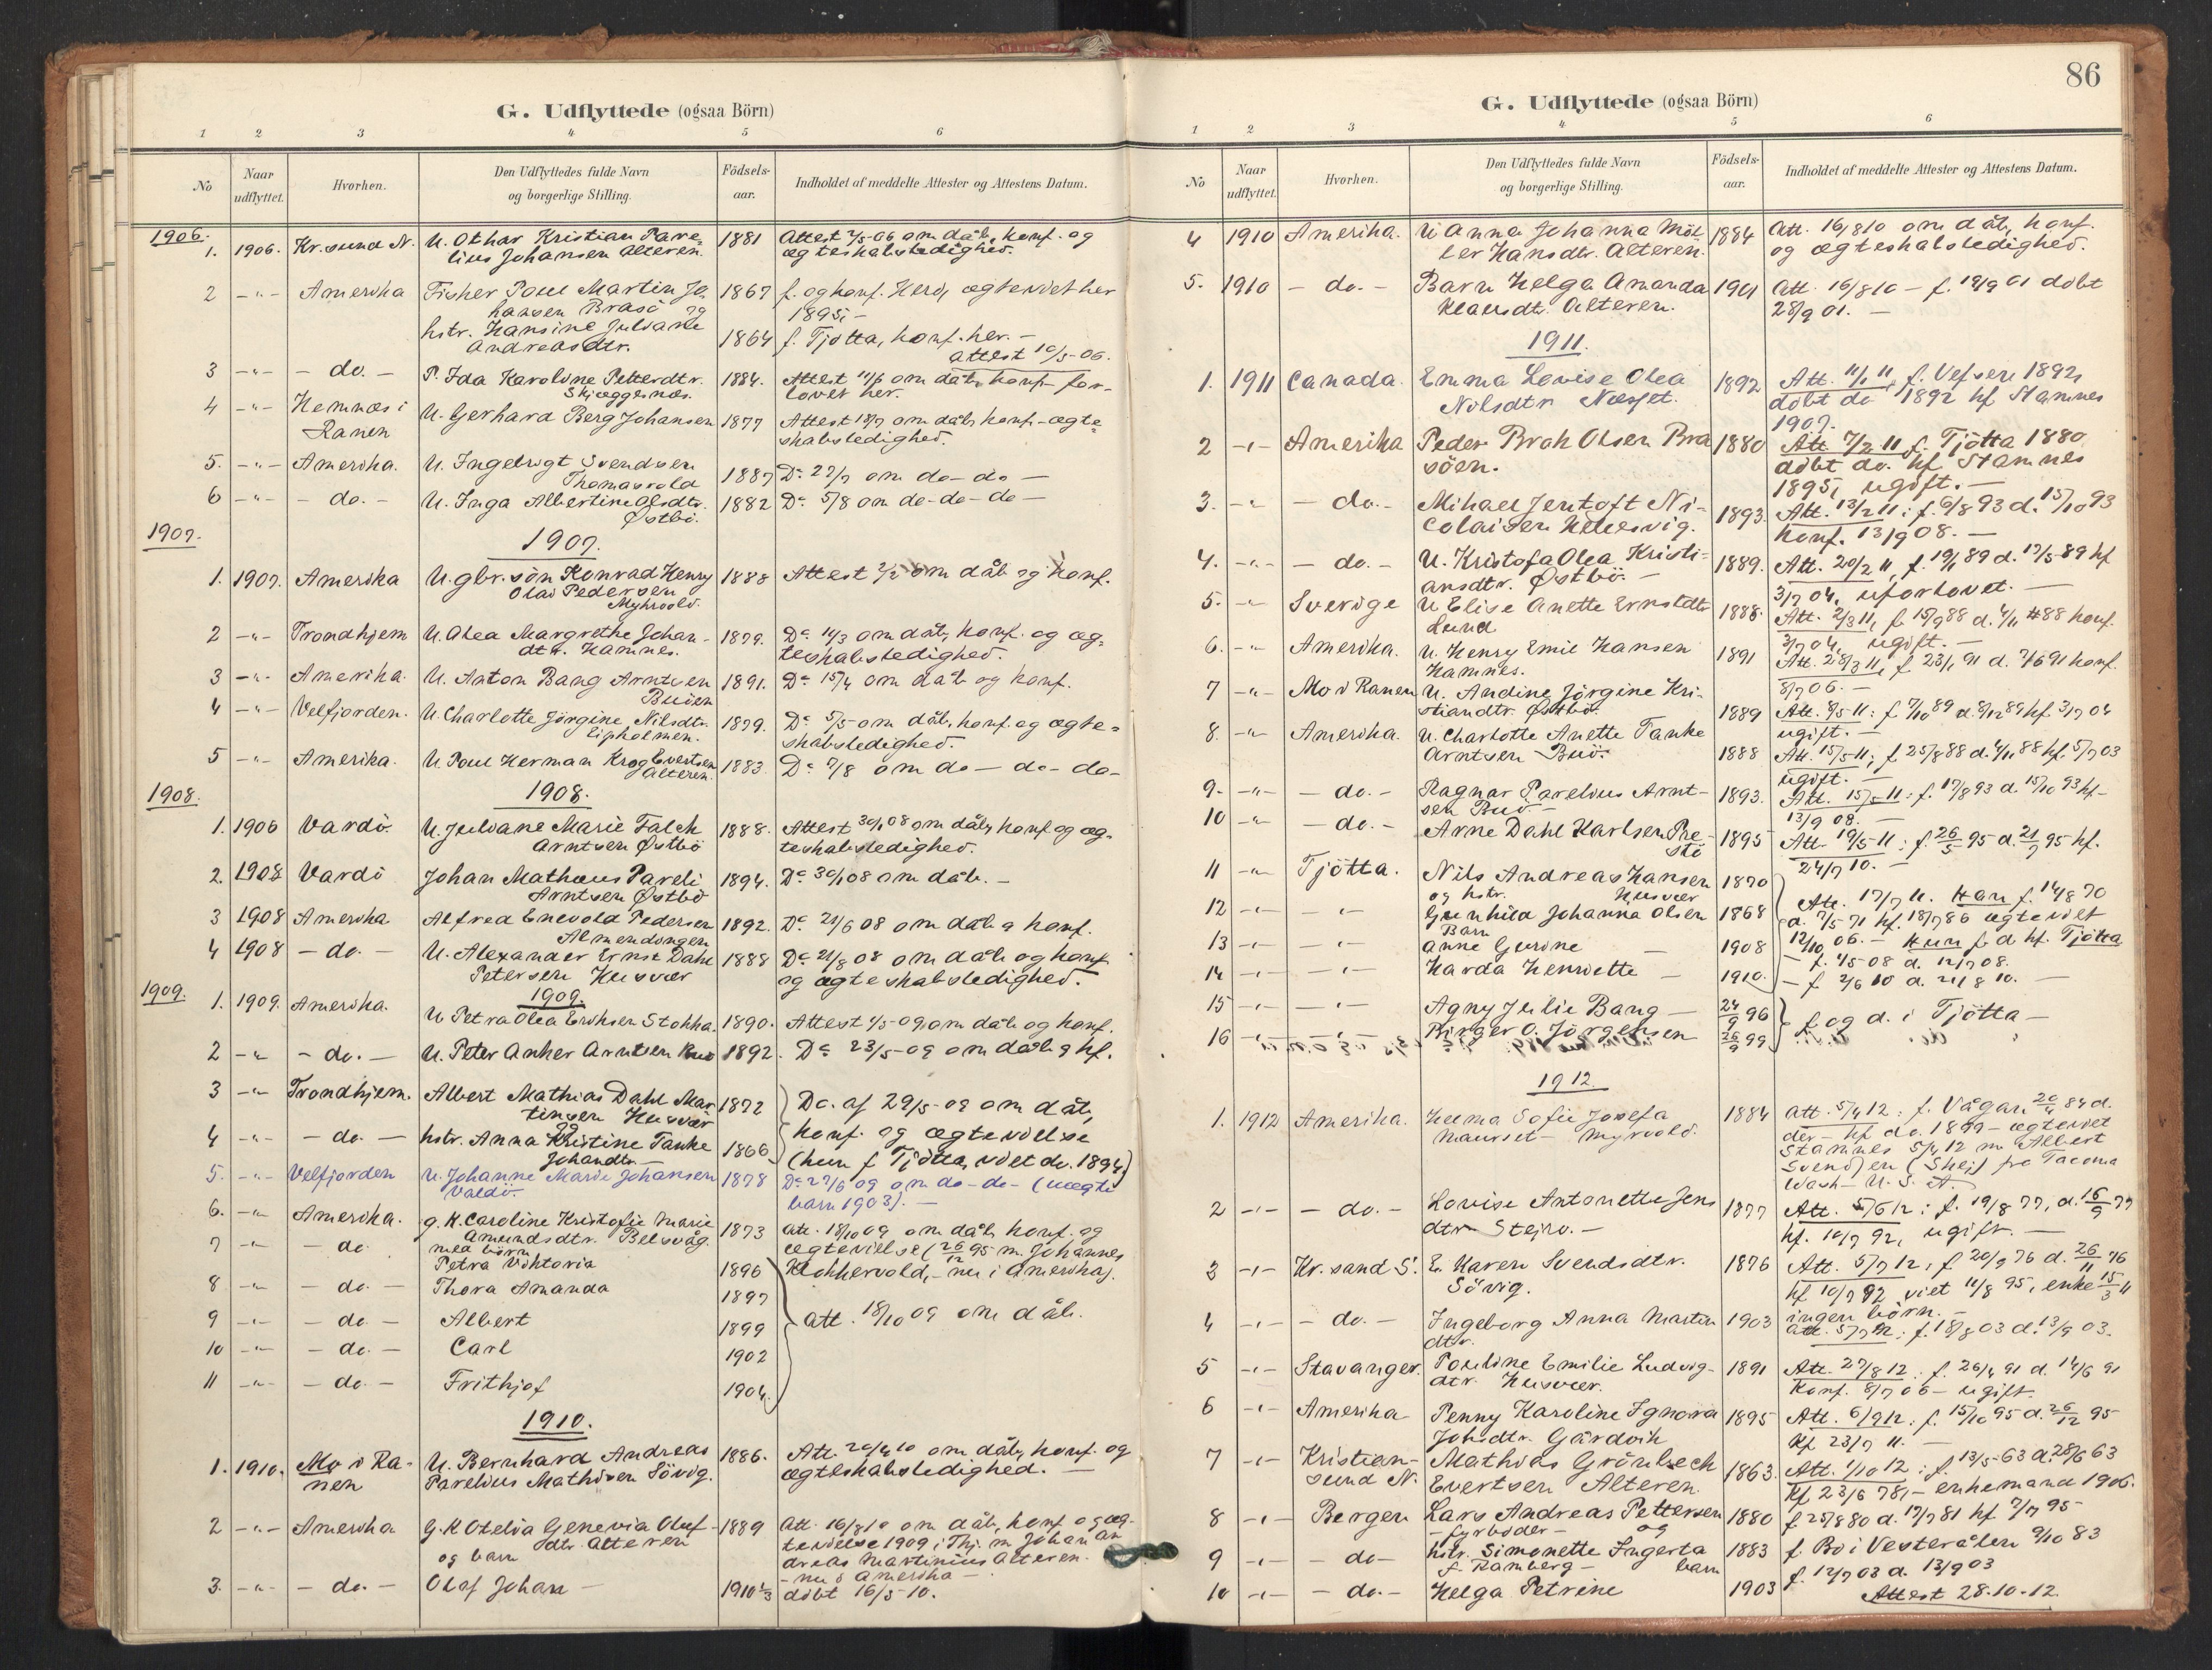 G. Udflyttede (ogsaa Börn)
1 2 3 4 5 6
No Naar udflyttet. Hvorhen. Den Udflyttedes fulde Navn og borgerlige Stilling. Födsels-aar. Indholdet af meddelte Attester og Attestens Datum.
1906.
1. 1906. Kr.sund N. U. Othar Kristian Pare- 1881 Attest 2/5-06 om dåb, konf. og
lius Johansen Alteren. ægteskabsledighed.
2 -"- Amerika Fisker Poul Martin Jo- 1867 f. og konf. Herö, ægteviet her
hansen Brasö og 1895,-
hstr. Hansine Juliane 1864 f. Tjötta, konf. her. -
Andreasdtr. Attest 10/5-06.
3 -"- - do. - P. Ida Karoline Petterdtr. 1884. Attest 11/6 om dåb, konf. for-
Skjæggesnæs. lovet her.
4 -"- Hemnæs i U. Gerhard Berg Johansen 1877 Attest 18/7 om dåb, konf. - ægte-
Ranen skabsledighed.
5. -"- Amerika. U. Ingebrigt Svendsen 1887 Do 27/7 om do - do -
Thomasvold
6 -"- - do. - U. Inga Albertine Olsdtr. 1882 Do 5/8 om do - do - do -
Östbö.
1907. 1907.
1. 1907. Amerika U. gbr. sön Konrad Henry 1888 Attest 2/2 om dåb og konf.
Olai Pedersen
Myhrvold.
2 -"- Trondhjem U. Olea Margrethe Johan- 1879. Do 14/3 om dåb, konf. og æg-
dtr. Hamnes. teskabsledighed.
3 -"- Amerika. U. Anton Bang Arntsen 1891. Do 15/4 om dåb og konf.
Buöen
4 -"- Velfjorden. U. Charlotte Jörgine Nilsdtr. 1879. Do 5/5- om dåb, konf. og ægte-
Lipholmen. skabsledighed.
5 -"- Amerika. U. Poul Herman Krog Evertsen 1883 Do 7/8 om do - do - do -
Alteren.
1908. 1908.
1. 1906 Vardö. U. Juliane Marie Falch 1888. Attest 30/1 08 om dåb, konf. og æg-
Arntsen Östbö teskabsledighed.
2. 1908 Vardö Johan Mathæus Pareli 1894. Do 30/1 08 om dåb. -
Arntsen Östbö
3 1908 Amerika Alfred Enevold Pedersen 1892. Do 21/6 08 om dåb og konf.
Almendingen
4 1908 - do. - U. Alexander Ernst Dahl 1888 Do 21/8 08 om dåb og konf.
Petersen Husvær og ægteskabsledighed.
1909. 1909.
1. 1909. Amerika. U. Petra Olea Eriksen Stokka. 1890. Attest 1/5-09 om dåb og konf.
2 -"- - do. - U. Peter Anker Arntsen Buö 1892. Do 23/5-09 om dåb og kf.
3 -"- Trondhjem. Albert Mathias Dahl Mar- 1872 Do. af 29/5-09 om dåb,
tinsen Husvær
4 -"- - do. - og hstr. Anna Kristine Tanke 1866 konf. og ægtevielse
Johandtr. - (hun f. Tjötta, viet do. 1894)
5. -"- Velfjorden U. Johanne Marie Johansen 1878 Do 27/6 09 om do - do - (uægte
Valdö. barn 1903). -
6. -"- Amerika. g. K. Caroline Kristofie Marie 1873 Att. 18/10 09 om dåb, konf. og
Amundsdtr. Belsvåg. ægtevielse (26/12 95 m. Johannes
7 -"- - do med börn Petra Viktoria 1896 Klokkervold, - nu i Amerika).
8 -"- - do. - Thora Amanda 1897
9 -"- - do - Albert 1899 Att. 18/10 09 om dåb.
10 -"- - do. - Carl 1902
11 -"- - do. - Frithjof 1904.
1910.
1. 1910. Mo i Ra- U. Bernhard Andreas 1886. Att. 20/4 10 om dåb, konf. og
nen Parelius Mathisen Sövig. ægteskabsledighed. -
2 -"- Amerika G. K. Otelia Genevia Oluf- 1889 Att. 16/8 10 om dåb, konf. og æg-
dtr. Alteren tevielse 1909 i Thj. m. Johan An
og barn dreas Martinius Alteren.
- nu i Amerika -
3. -"- - do. - Olaf Johan - 1910 döbt 16/5-10.
86
G. Udflyttede (ogsaa Börn)
1 2 3 4 5 6
No Naar udflyttet. Hvorhen. Den Udflyttedes fulde Navn og borgerlige Stilling. Födsels-aar. Indholdet af meddelte Attester og Attestens Datum.
4 1910 Amerika. U. Anna Johanna Möl- 1884 Att. 16/8 10 om dåb, konf.
ler Hansdtr. Alteren. og ægteskabsledighed.
5. 1910 - do. - Barn Helga Amanda 1901 Att. 16/8 10 - f. 19/9 01 döbt
Klausdtr. Alteren. 28/9 01. -
1911.
1. 1911 Canada. Emma Lovise Olea 1892 Att. 11/1 11, f. Vefsen 1892,
Nilsdtr. Næsset. döbt do 1892 kf. Stamnes
1907.
2 -"- Amerika Peder Broch Olsen Bra 1880 Att. 7/2 11 f. Tjötta 1880
söen. döbt do. kf. Stamnes
1895, ugift. -
3. -"- - do. - Mikael Jentoft Ni- 1893. Att. 13/2 11: f. 6/8 93 d. 15/10 93
colaisen konf. 13/9 08. -
4. -"- - do. - U. Kristofa Olea Kristi- 1889. Att. 20/2 11, f. 19/1 89 d. 17/5 89 kf
ansdtr. Östbö. - 3/7 04, uforlovet. -
5. -"- Sverige U. Elise Anette Ernstdtr 1888. Att. 2/3 11, f. 15/9 88 d. 4/11 88 konf.
Lund 3/7 04, ugift. -
6. -"- Amerika. U. Henry Emil Hansen 1891 Att. 28/3 11, f. 23/1 91 d. 7/6 91 konf.
Hamnes. 8/7 06. -
7 -"- Mo i Ranen U. Andine Jörgine Kri- 1889 Att. 8/5 11: f. 7/10 89 d. 8/12 89 kf. 3/7 04
stiandtr. Östbö. ugift. -
8. -"- Amerika. U. Charlotte Anette Tanke 1888 Att. 15/5-11; f. 25/8 88 d. 4/11 88 kf. 5/7 03
Arntsen Buö. ugift. -
9. -"- - do. - Ragnar Parelius Arnt- 1893. Att. 15/5-11: f. 17/8 93 d. 15/10 93 kf-
sen Buö. - 13/9 08. -
10 -"- - do. - Arne Dahl Karlsen Pre- 1895 Att. 19/5-11: f. 26/5 95 d. 21/7 95 kf.
stö 24/7 10. -
11 -"- Tjötta. Nils Andreas Hansen 1870 Att. 17/7 11. Han f. 14/8 70
og hstr. Husvær
12 -"- -"- Gunhild Johanna Olsen 1868 d. 7/5 71 kf. 18/7 86 ægteviet
Barn
13 -"- -"- Anne Gurine - 1908 12/10 06. - Hun f. d kf. Tjötta
- f. 4/5-08 d. 12/7 08.
14 -"- -"- Harda Henriette - 1910. - f. 2/6 10 d. 21/8 10. -
15 -"- -"- Agny Julie Bang - 24/9 96 f. og d. i Tjötta -
16 -"- -"- Birger O. Jörgensen 26/9 99
1912.
1. 1912 Amerika. Helma Sofie Josefa 1884 Att. 5/4 12: f. Vågan 20/4 84 d.
Maurset - Myrvold. der - kf do. 1899 - ægteviet
Stamnes 5/4 12 m Albert
Svendsen (Skej) fra Tacoma
Wash - U. S. A.
2 -"- - do. - Lovise Antonette Jens 1877 Att. 5/6 12: f. 19/8 77, d. 16/9 77
dtr Stejro. - kf. 10/7 92, ugift. -
3 -"- Kr.sand S. E. Karen Svendsdtr. 1876 Att. 5/7 12, f. 20/9 76 d. 26/11 76
Sövig. kf 10/7 92 viet 11/8 95, enke 15/3 11
ingen börn. -
4 -"- - do. - Ingeborg Anna Martin 1903 Att. 5/7 12: f. 18/8 03 d. 13/9 03.
dtr.
5 -"- Stavanger. Pouline Emilie Ludvig- 1891 Att. 27/8 12: f. 26/4 91 d. 14/6 91
dtr. Husvær. Konf. 8/7 06 - ugift.
6 -"- Amerika Penny Karoline Ignora 1895 Att. 6/9 12: f. 15/10 95 d. 26/12 95
Johsdtr. Gårdvik Kf 23/7 11. -
7 -"- Kristian- Mathias Grönbech 1863. Att. 1/10 12: f. 13/5-63 d. 28/6 63
sund N. Evertsen Alteren. Kf 23/6 78, - enkemand 1906.
8 -"- Bergen Lars Andreas Pettersen 1880 f 25/8 80 d. 17/7 81 kf 7/7 95-
- fyrböder - og
9 -"- - do - hstr. Simonette Ingerta 1883 f. Bö i Vesterålen 9/10 83
f. Ramberg - barn f. 12/7 03 d. 13/9 03
10 -"- - do. - Helga Petrine 1903 Attest 28-10-12.